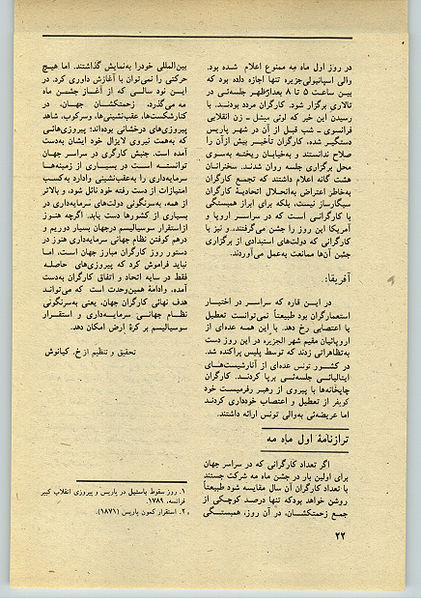 در روز اول ماه مه ممنوع اعلام شده بود.
والی اسپانیولی‌جزیره تنها اجازه داده بود که
بین ساعت ۵ تا ۸ بعدازظهر جلسه‌ئی در
تالاری برگزار شود. کارگران مردد بودند. با
رسیدن این خبر که لوئی میشل ـ زن انقلابی
فرانسوی ـ شب قبل از آن در شهر پاریس
دستگیر شده، کارگران تأخیر بیش ازآن را
صلاح ندانستند و به‌خیابان ریخته به‌سوی
محل برگزاری جلسه روان شدند. سخنرانان
هشت گانه اعلام داشتند که تجمع کارگران
به‌خاطر اعتراض به‌انحلال اتحادیهٔ کارگران
سیگارساز نیست، بلکه برای ابراز همبستگی
با کارگرانی است که در سراسر اروپا و
آمریکا این روز را جشن می‌گرفتند، و نیز با
کارگرانی که دولت‌های استبدادی از برگزاری
جشن آن‌ها ممانعت به‌عمل می‌آوردند.
آفریقا:
در این قاره که سراسر در اختیار
استعمارگران بود طبیعتاً نمی‌توانست تعطیل
یا اعتصابی رخ دهد. با این همه عده‌ای از
اروپائیان مقیم شهر الجزیره در این روز دست
به‌تظاهراتی زدند که توسط پلیس پراکنده شد.
در کشور تونس عده‌ای از آنارشیست‌های
ایتالیائی جلسه‌ئی برپا کردند. کارگران
چاپخانه‌ها با پیروی از رهبر رفرمیست خود
کوبفر از تعطیل و اعتصاب خودداری کردند
اما عریضه‌ئی به‌والی تونس ارائه داشتند.
ترازنامهٔ اول ماه مه
اگر تعداد کارگرانی که در سراسر جهان
برای اولین بار در جشن ماه مه شرکت جستند
با تعداد کارگران آن سال مقایسه شود طبیعتاً
روشن خواهد بودکه تنها درصد کوچکی از
جمع زحمتکشان، در آن روز، همبستگی
بین‌المللی خودرا به‌نمایش گذاشتند. اما هیچ
حرکتی را نمی‌توان با آغازش داوری کرد. در
این نود سالی که از آغاز جشن ماه
مه می‌گذرد، زحمتکشان جهان، در
کنارشکست‌ها، عقب‌نشینی‌ها، وسرکوب، شاهد
پیروزی‌های درخشانی بوده‌اند؛ پیروزی‌هائی
که به‌همت نیروی لایزال خود ایشان به‌دست
آمده است. جنبش کارگری در سراسر جهان
توانسته است در بسیاری از زمینه‌ها
سرمایه‌داری را به‌عقب‌نشینی وادارد به‌کسب
امتیازات از دست رفته خود نائل شود، و بالاتر
از همه، به‌سرنگونی دولت‌های سرمایه‌داری در
بسیاری از کشورها دست یابد. اگرچه هنوز
ازاستقرار سوسیالیسم درجهان بسیار دوریم و
درهم کوفتن نظام جهانی سرمایه‌داری هنوز در
دستور روز کارگران مبارز جهان است، اما
نباید فراموش کرد که پیروزی‌های حاصله
فقط در سایه اتحاد و اتفاق کارگران به‌دست
آمده، وادامهٔ همین‌وحدت است که می‌تواند
هدف نهائی کارگران جهان، یعنی به‌سرنگونی
نظام جهانی سرمایه‌داری و استقرار
سوسیالیسم بر کرهٔ ارض امکان دهد.
تحقیق و تنظیم از خ. کیانوش
۱. روز سقوط باستیل در پاریس و پیروزی انقلاب کبیر
فرانسه، ۱۷۸۹.
۲. استقرار کمون پاریس (۱۸۷۱).
۲۲